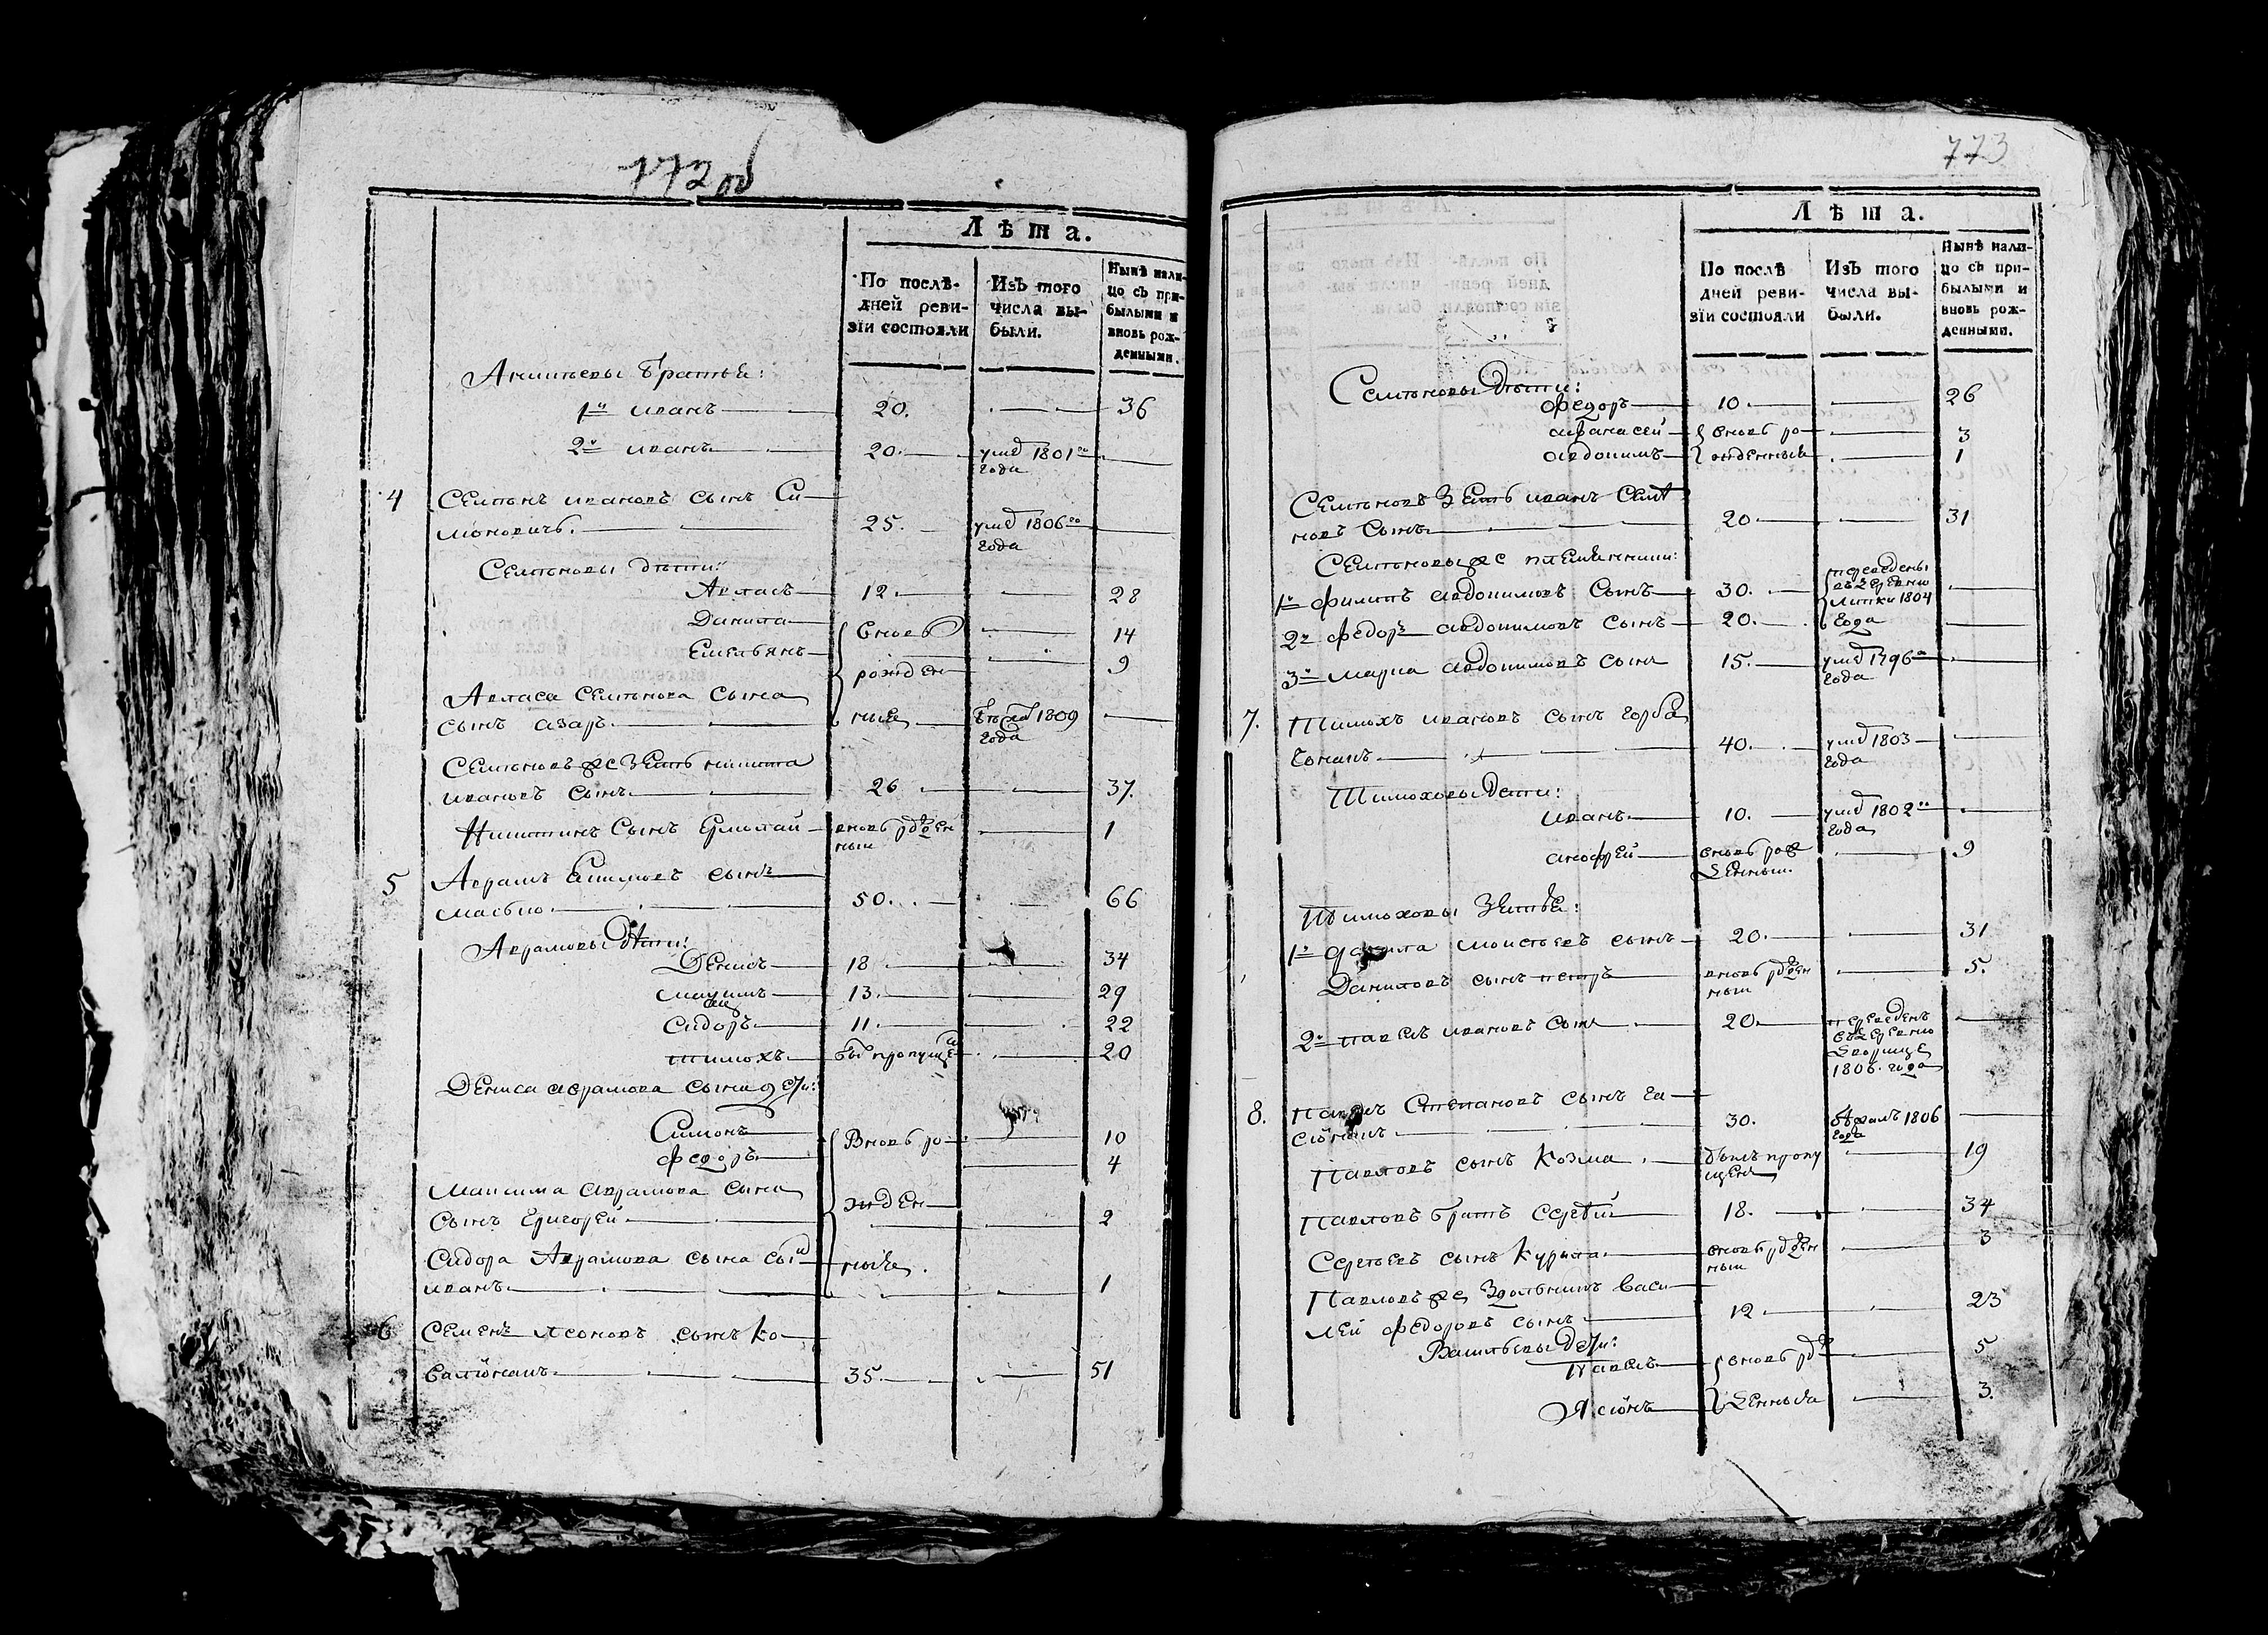 772 об
Лѣта.
По послѣ-
дней реви-
зіи состояли
Изъ того
числа вы-
были.
Нынѣ нали-
цо съ при-
былыми и
вновь рож-
денными.
братья:
1й иванъ 20. 36
2й иванъ 20. умѣ 1801го
года
4 Семенъ ивановъ сынъ Си
моновичь. 25. умѣ 1806го
года
Семеновы дѣти:
Авласъ 12. 28
Данила вновь 14
Емельянъ 9
рожден
Авласа Семенова сына
сынъ азаръ ныя 1809
года
Семеновъ же зеть никита
ивановъ сынъ 26 37.
Никитинъ сынъ Ермолай вновь рожден 1
ный
5 Аврамъ сынъ
50. 66
Аврамовы дѣти:
Денисъ 18 34
максимъ 13. 29
Сидоръ 11. 22
тимохъ бы пропуще 20
Дениса аврамова сына дети:
Симонъ Вновь ро 10
федоръ 4
Максима аврамова сына
сынъ Григорей жден 2
Сидора Аврамова сына сы
иванъ ныя. 1
6 Семенъ Ясоновъ сынъ Ко
валіонакъ 35. 51
773
Лѣта.
По послѣ
дней реви-
зіи состояли
Изъ того
числа вы-
были.
Нынѣ нали-
цо съ при-
былыми и
вновь рож-
денными.
Семеновы дѣти:
федоръ 10. 26
афанасей вновь ро 3
авдокимъ жденныя 1
Семеновъ Зеть иванъ Семе
новъ Сынъ 20 31
Семеновы же племянники:
переведены
1й филипъ авдокимовъ Сынъ 30. въ деревню
липки 1804
2й федоръ авдокимовъ сынъ 20. года
3й марка авдокимовъ сынъ 15. умѣ 1796го
года
7. Тимохъ ивановъ сынъ горба
чонакъ 40. умѣ 1803
года
Тимоховы дети:
иванъ 10. умѣ 1802го
года
анофрей вновь рож 9
денный.
Тимоховы Зетья:
1й данила моисеевъ сынъ 20. 31
Даниловъ сынъ петръ вновь рожден 5.
ный
2й павелъ ивановъ сынъ 20. переведенъ
въ деревню
дворище
1806. года
8. Павелъ Степановъ сынъ га
30. 1806
года
Павловъ сынъ Козма былъ пропу 19
щенъ
Павловъ братъ Сергей 18. 34
Сергеевъ сынъ Курила вновь рожден 3
ный
Павловъ же Здольникъ Васи
лей федоровъ сынъ 12. 23
Васильевы дети:
Павелъ вновь рож 5
Ясонъ денныя 3.